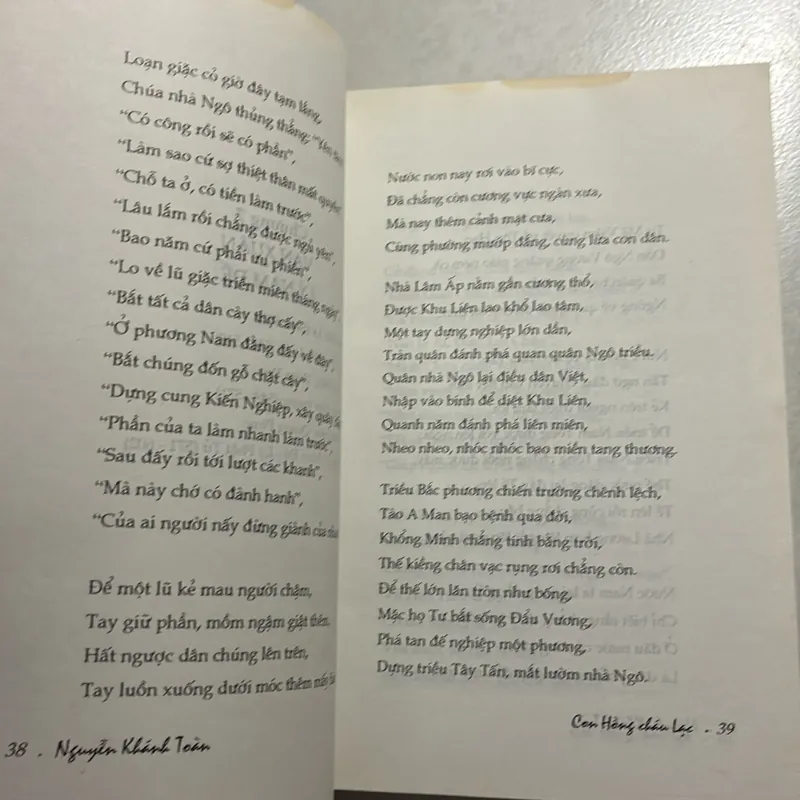 Loạn giặc cỏ giờ đây tạm lắng,
Chúa nhà Ngô thủng thẳng:
"Có công rồi sẽ có phần",
"Làm sao cứ sợ thiệt thân mất
"Chỗ ta ở, có tiền làm trước",
"Lâu lắm rồi chẳng được ngủ yên",
"Bao năm cứ phải ưu phiền",
"Lo về lũ giặc triền miên tháng ngày",
"Bắt tất cả dân cày thợ cấy",
"Ở phương Nam đằng đấy về đây",
"Bắt chúng đốn gỗ chặt cây",
"Dựng cung Kiến Nghiệp, xây
"Phần của ta làm nhanh làm trước",
"Sau đấy rồi tới lượt các khanh",
"Mà này chớ có đành hanh",
"Của ai người nấy đừng giành của
Để một lũ kẻ mau người chậm,
Tay giữ phần, mồm ngậm giật thêm.
Hất ngược dân chúng lên trên,
Tay luồn xuống dưới móc thêm mấy
38 . Nguyễn Khánh Toàn
Nước non nay rơi vào bĩ cực,
Đã chẳng còn cương vực ngàn xưa,
Mà nay thêm cảnh mạt cưa,
Cùng phường mướp đắng, cùng lừa con dân.
Nhà Lâm Ấp nằm gần cương thổ,
Được Khu Liên lao khổ lao tâm,
Một tay dựng nghiệp lớn dần,
Tràn quân đánh phá quan quân Ngô triều.
Quân nhà Ngô lại điều dân Việt,
Nhập vào binh để diệt Khu Liên,
Quanh năm đánh phá liên miên,
Nheo nheo, nhóc nhóc bao miền tang thương.
Triều Bắc phương chiến trường chênh lệch,
Tào A Man bạo bệnh qua đời,
Khổng Minh chẳng tính bằng trời,
Thế kiềng chân vạc rụng rơi chẳng còn.
Để thế lớn lăn tròn như bống,
Mặc họ Tư bắt sống Đẩu Vương,
Phá tan đế nghiệp một phương,
Dựng triều Tây Tấn, mắt lườm nhà Ngô.
Con Hồng cháu Lạc . 39